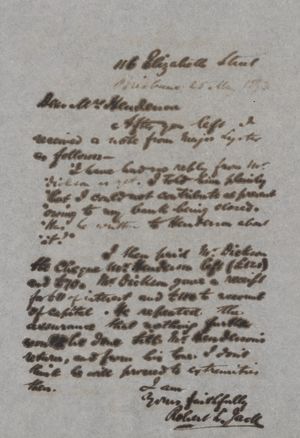 116 Elizabeth Street
Brisbane 25 May 1893
Dear Mrs Henderson
After you left I
received a note from Major Lyster
as follows—
"I have had no reply from Mr
Dickson as yet. I told him plainly
that I could not contribute at present
owing to my bank being closed.
he written to Henderson about
it."
I then paid Mr Dickson
the Cheque Mrs Henderson left
and £70. Mr Dickson gave a receipt
for of interest and to account
of capital. He repeated the
assurance that nothing further
would be done till Mr Henderson's
return, and from his tone I don't
think he will proceed to extremities
then.
I am
Yours faithfully
Robert L. Jack